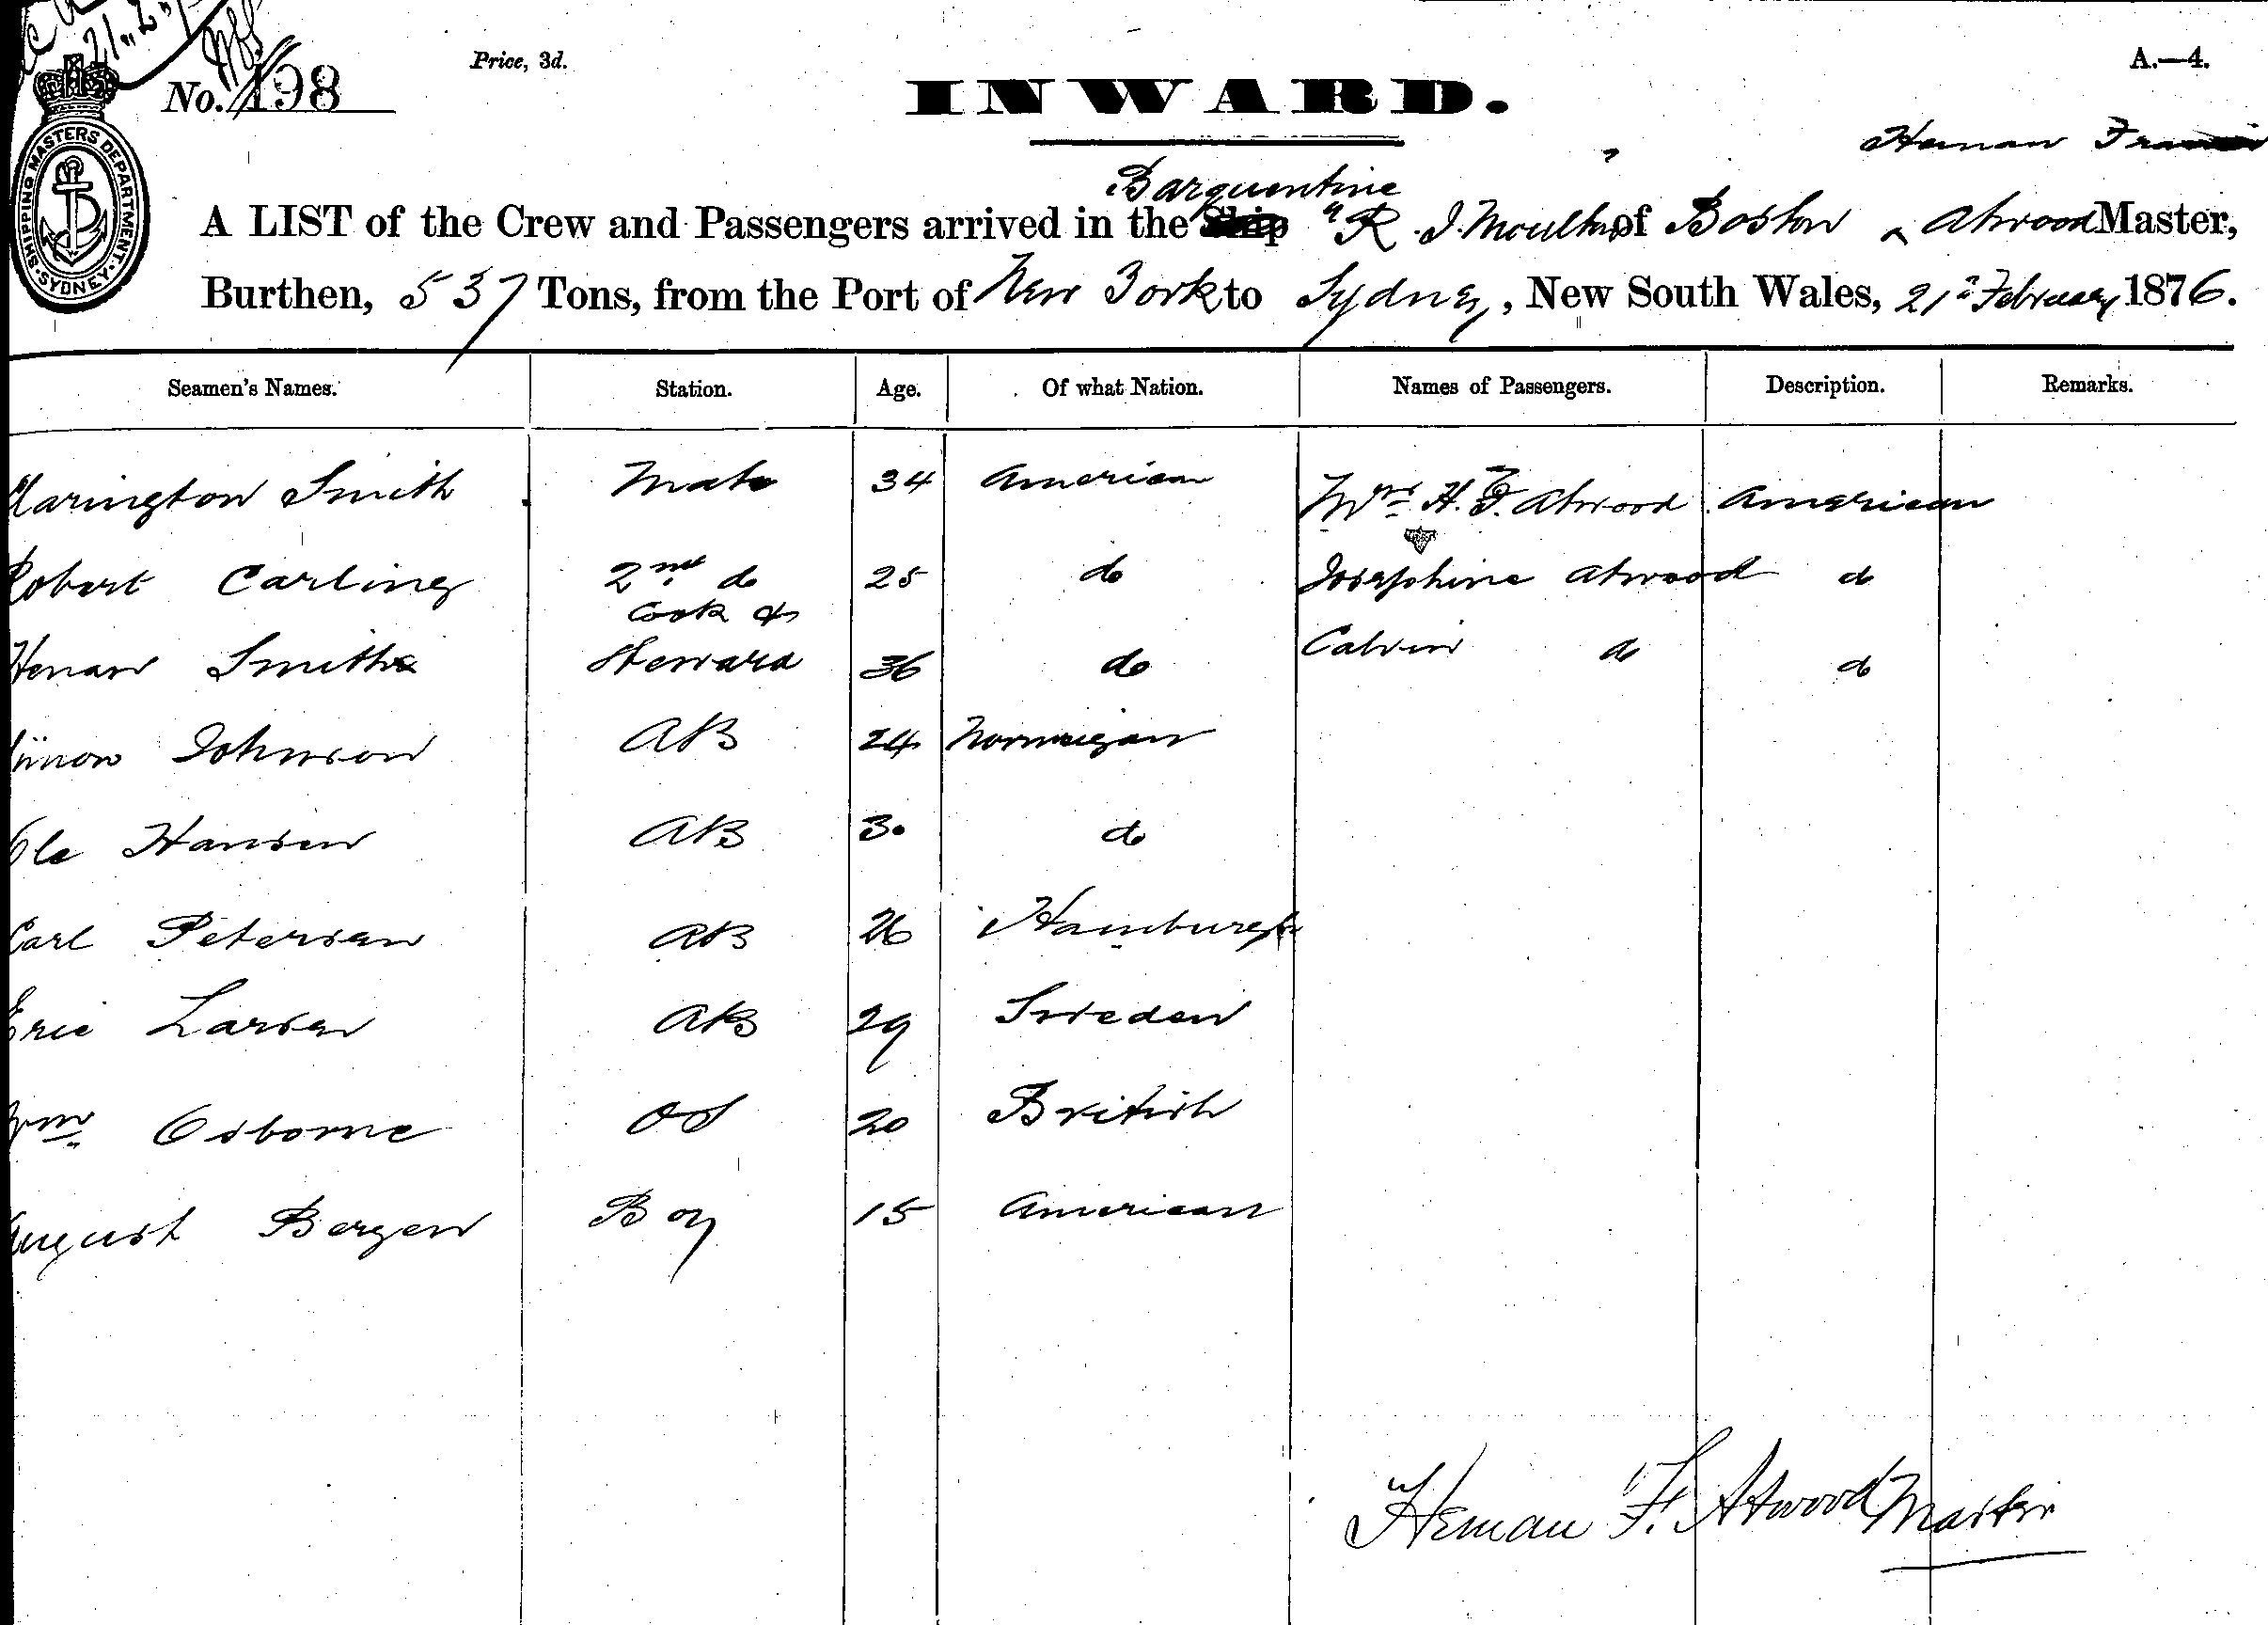 21.2.
No. 198
Price, 3d.
INWARD.
A.—4.
SHIPPING MASTERS DEPARTMENT. SYDNEY.
Heman Francis
Barquentine
A LIST of the Crew and Passengers arrived in the Ship "R. I. Moulton of Boston ^ Atwood Master,
Burthen, 537 Tons, from the Port of New York to Sydney, New South Wales, 21st February 1876.
Seamen's Names. Station. Age. Of what Nation. Names of Passengers. Description. Remarks.
Harington Smith Mate 34 American Mrs H. F. Atwood American
Robert Carling 2nd do 25 do Josephine Atwood do
Cook &
Heman Smith Steward 36 do Calvin do do
Simon Johnson AB 24 Norwegian
Ole Hansen AB 30 do
Carl Petersen AB 26 Hamburgh
Eric Larsen AB 29 Sweden
Wm Osborne OS 20 British
August Bergen Boy 15 American
Heman F. Atwood Master